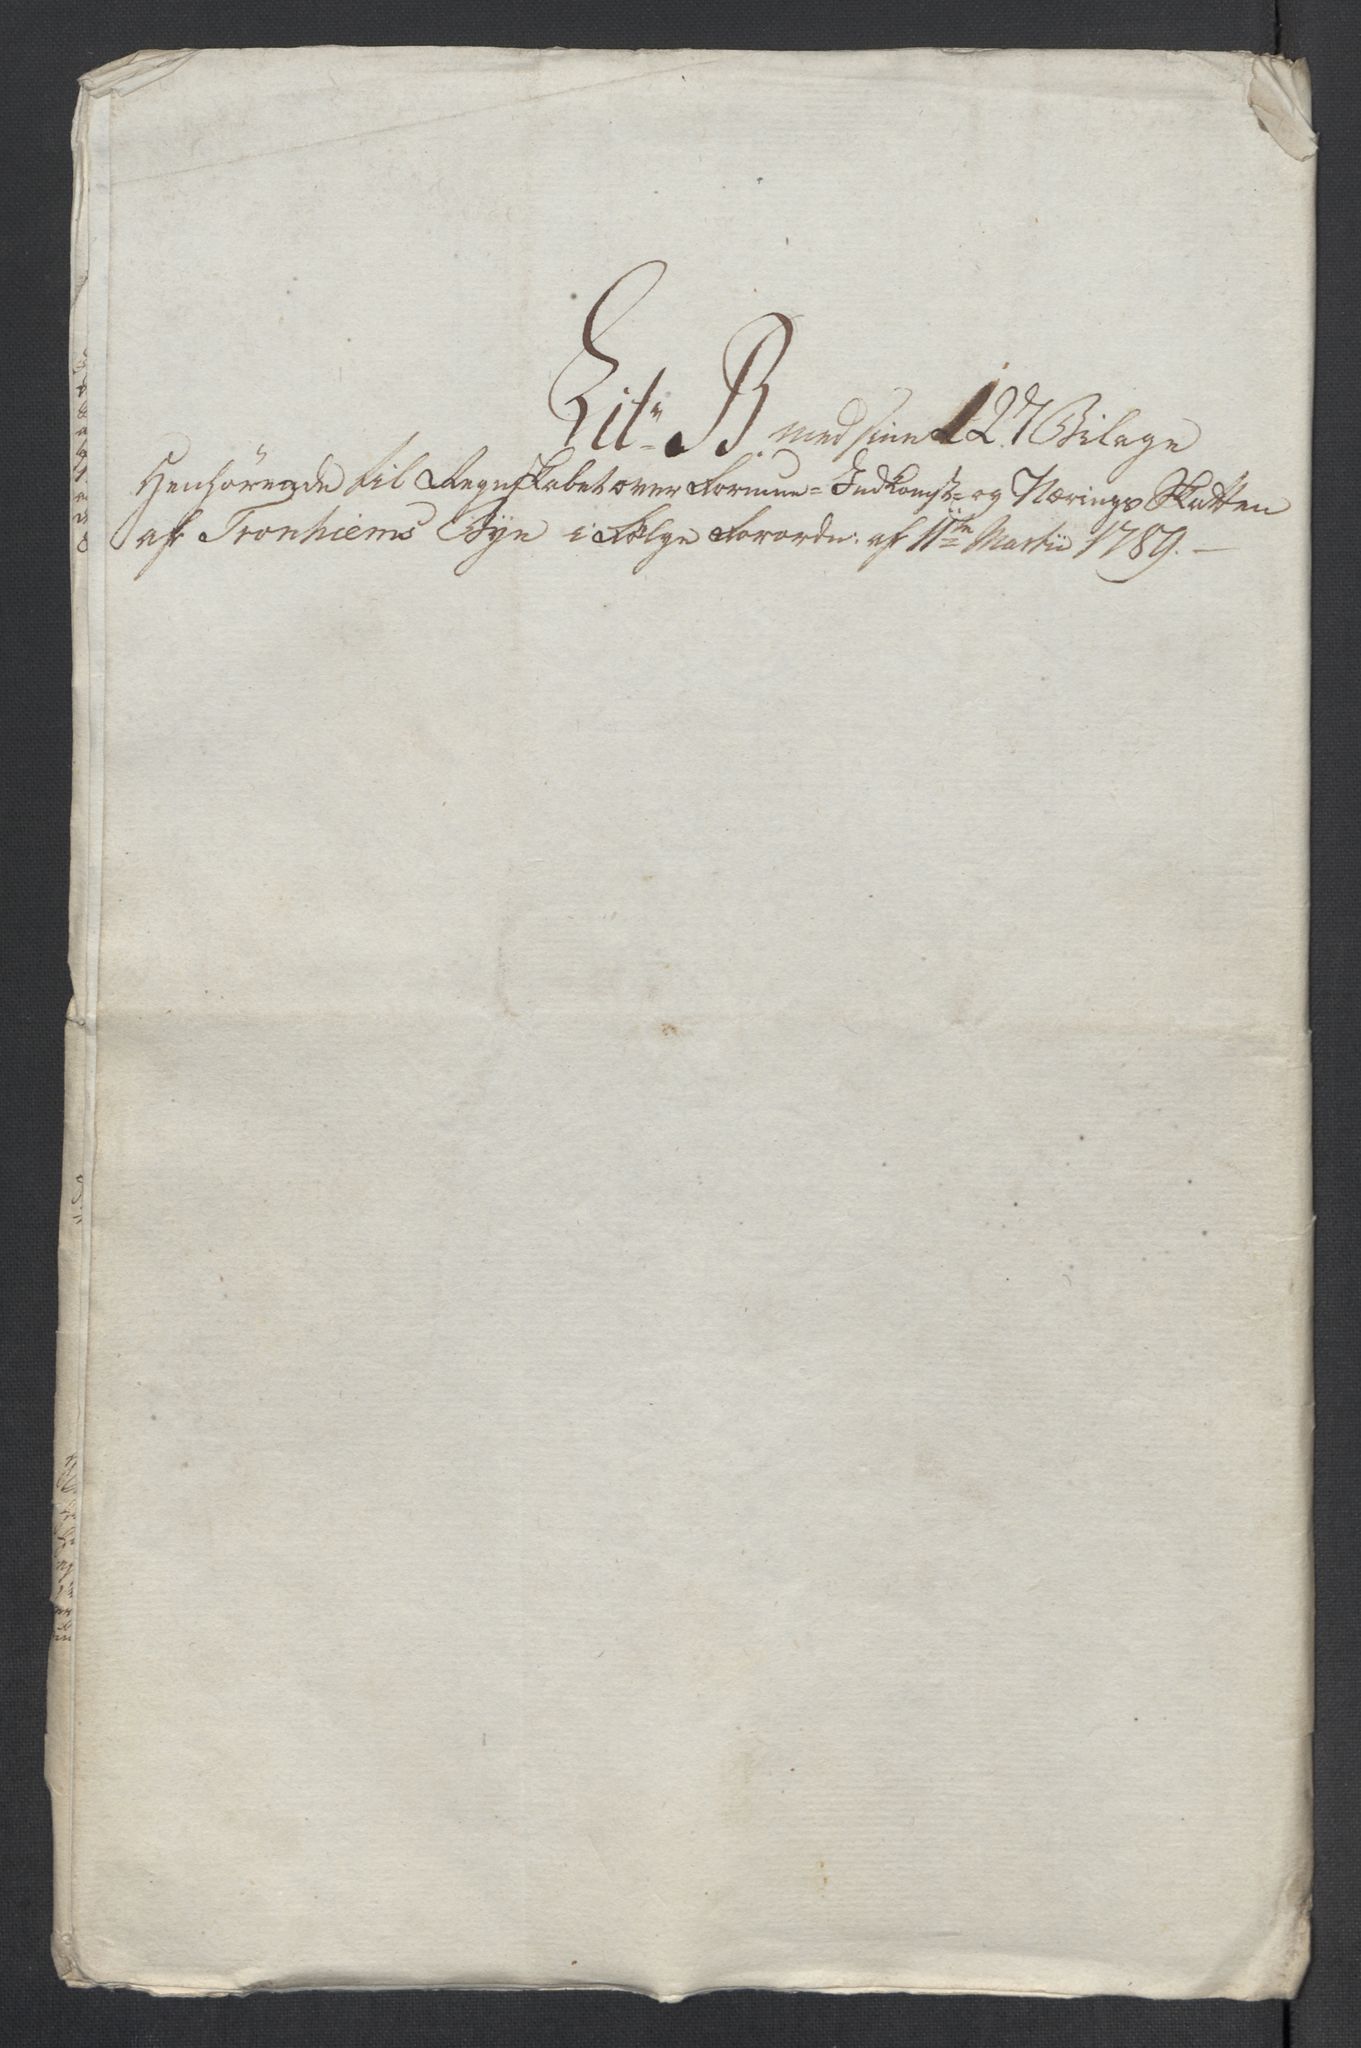 Litr B med sine 127 Bilage
Henhörende til Regnskabet over Formue= Indkomst= og Nærings Skatten
af Tronhiems Bye i Følge Forordn: af 11te Martii 1789. —